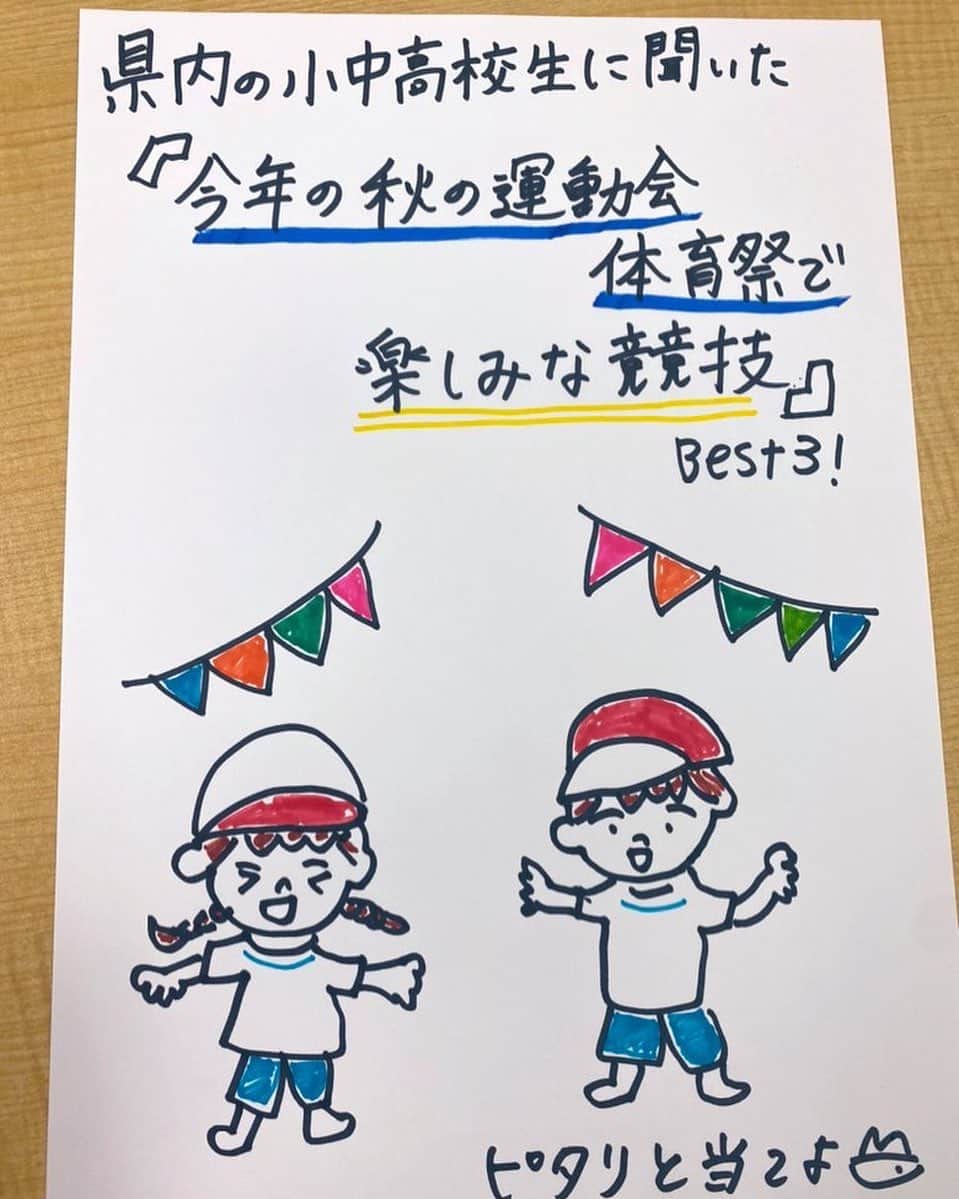 県内の小中高校生に聞いた
『今年の秋の運動会
体育祭で
楽しみな競技』
Best3!
ピタリと当てよ